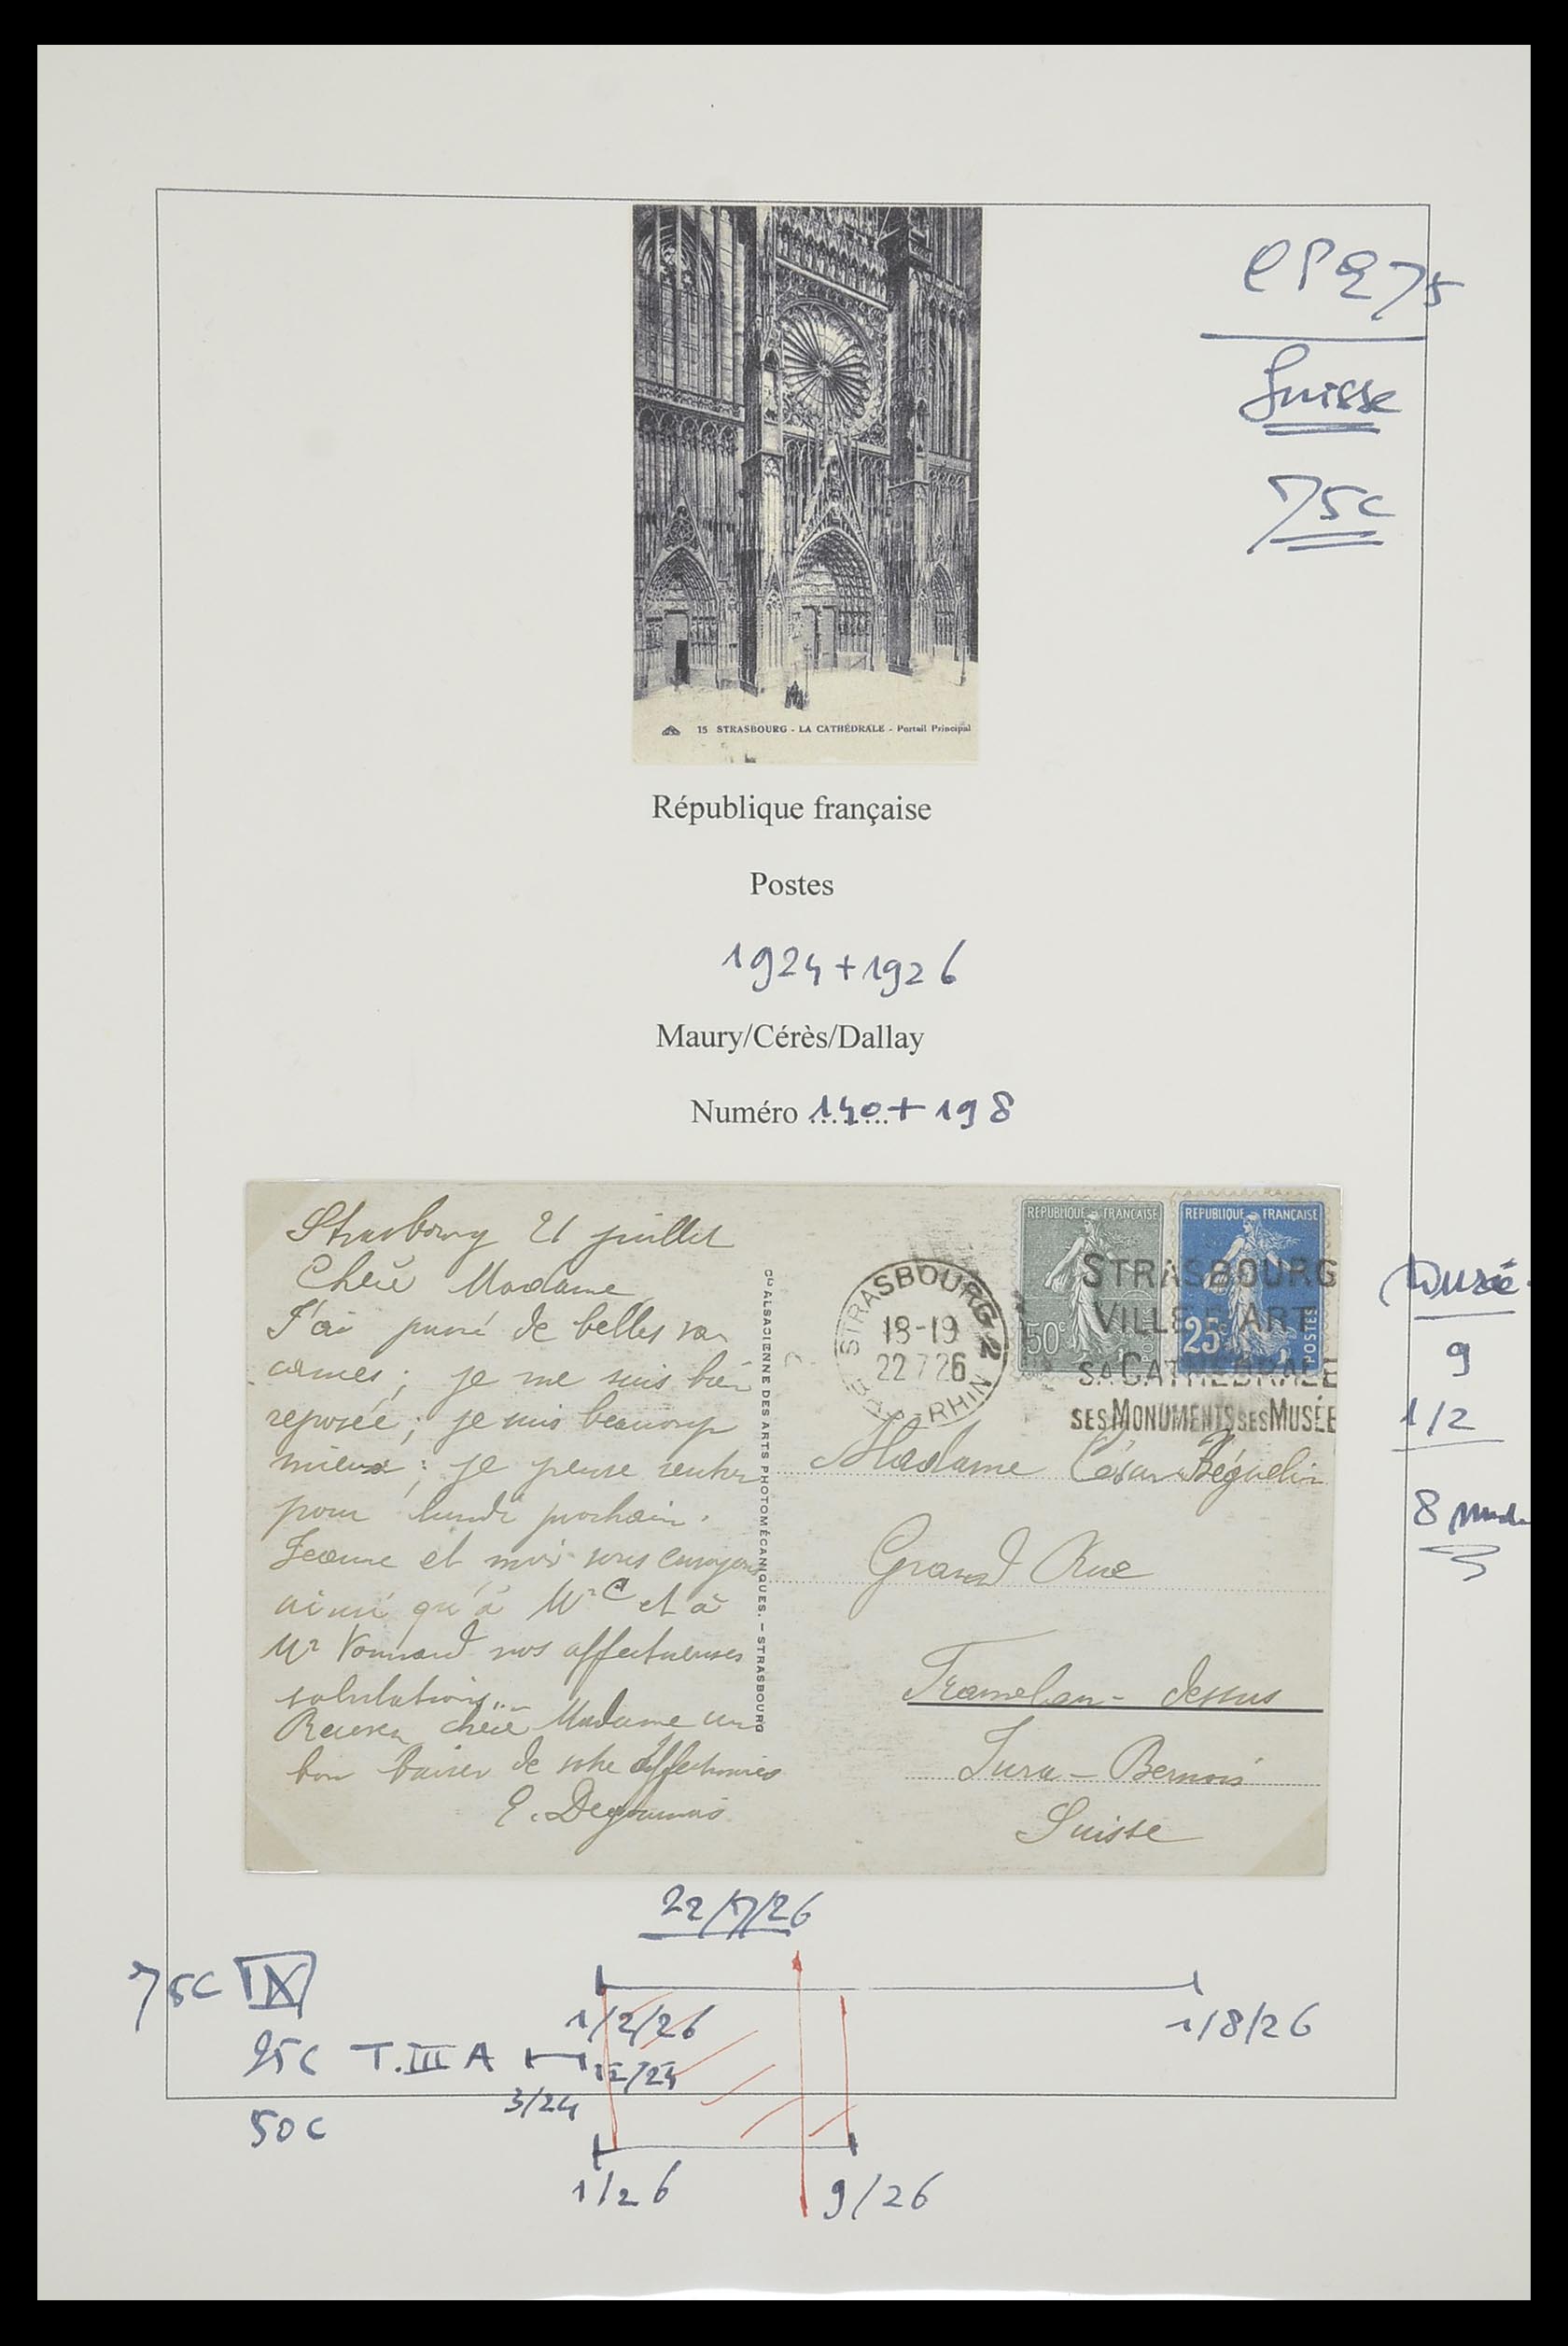 CP 275
Suisse
75c
15 STRASBOURG - LA CATHÉDRALE - Portail Principal
République française
Postes
1924+1926
Maury/Cérès/Dallay
Numéro 140+198
Strasbourg 21 juillet
Chère Madame
J'ai passé de belles va
cances; je me suis bien
reposée; je suis beaucoup
mieux; je pense rentrer
pour lundi prochain.
Jeanne et moi vous envoyons
ainsi qu'à Mr C et à
Mr nos affectueuses
salutations...
Recevez chère Madame un
bon baiser de votre affectionnée
E. Degoumois
Cie ALSACIENNE DES ARTS PHOTOMÉCANIQUES. — STRASBOURG
STRASBOURG 2
18-19
22 7 26
BAS-RHIN
REPUBLIQUE FRANÇAISE
50c
POSTES
REPUBLIQUE FRANÇAISE
25c
POSTES
STRASBOURG
VILLE D'ART
SA CATHEDRALE
SES MONUMENTS SES MUSÉE
Madame César Béguelin
Grand Rue
Tramelan-dessus
Jura-Bernois
Suisse
Durée
9
1/2
8
22/7/26
75c IX
1/2/26
1/8/26
25c T.III A
3/24
12/24
50c
1/26
9/26